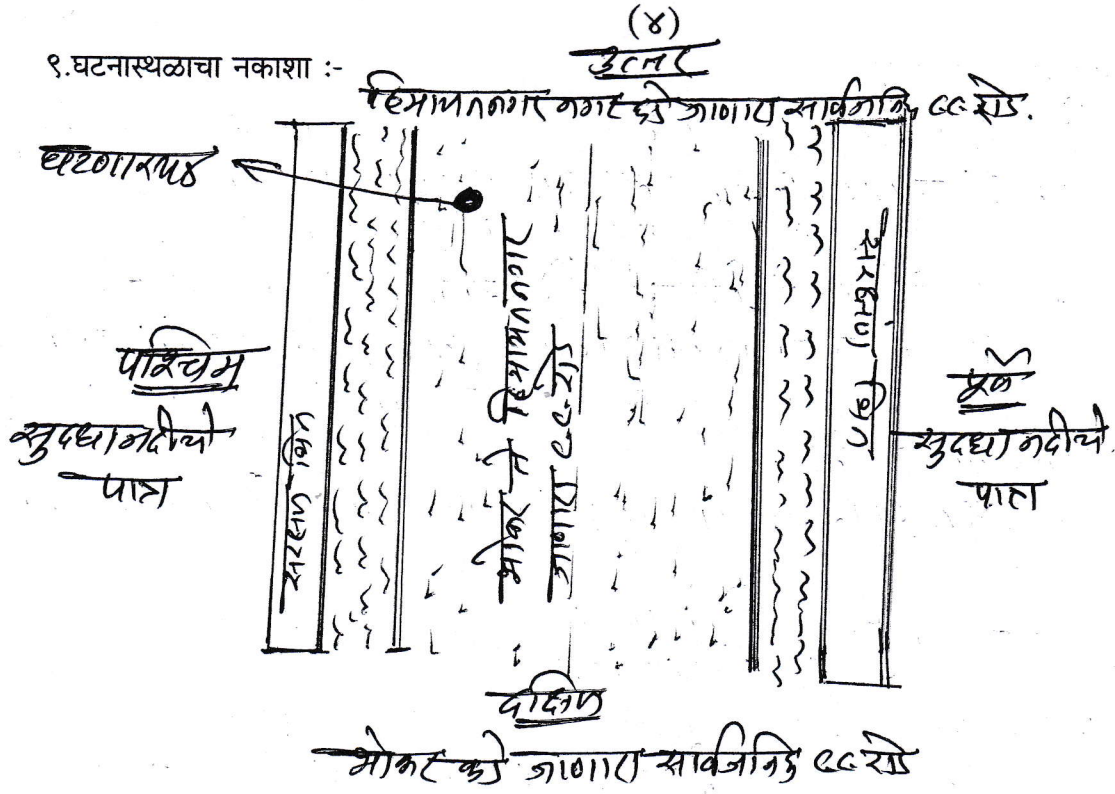 (४)
९.घटनास्थळाचा नकाशा :-
उत्तर
हिमायतनगर कडे जाणारा सार्वजनिक CC रोड.
घटणास्थळ
संरक्षण भिंत
भोकर ते हिमायतनगर
जाणारा CC रोड
संरक्षण भिंत
पश्चिम
सुद्धा नदीचे
पात्र
पूर्व
सुद्धा नदीचे
पात्र
दक्षिण
भोकर कडे जाणारा सार्वजनिक CC रोड